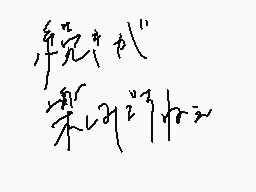 続きが
楽しみですねぇ